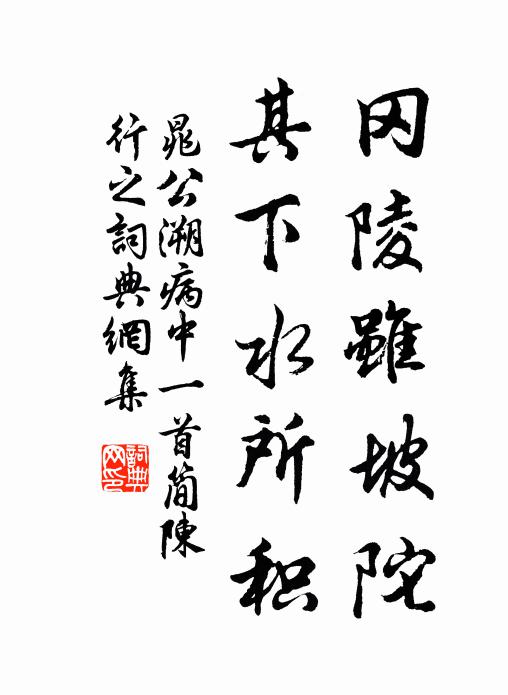 冈陵虽坡陀
其下水所积
晁公溯病中一首简陳
行之詞典網集
詞典网印